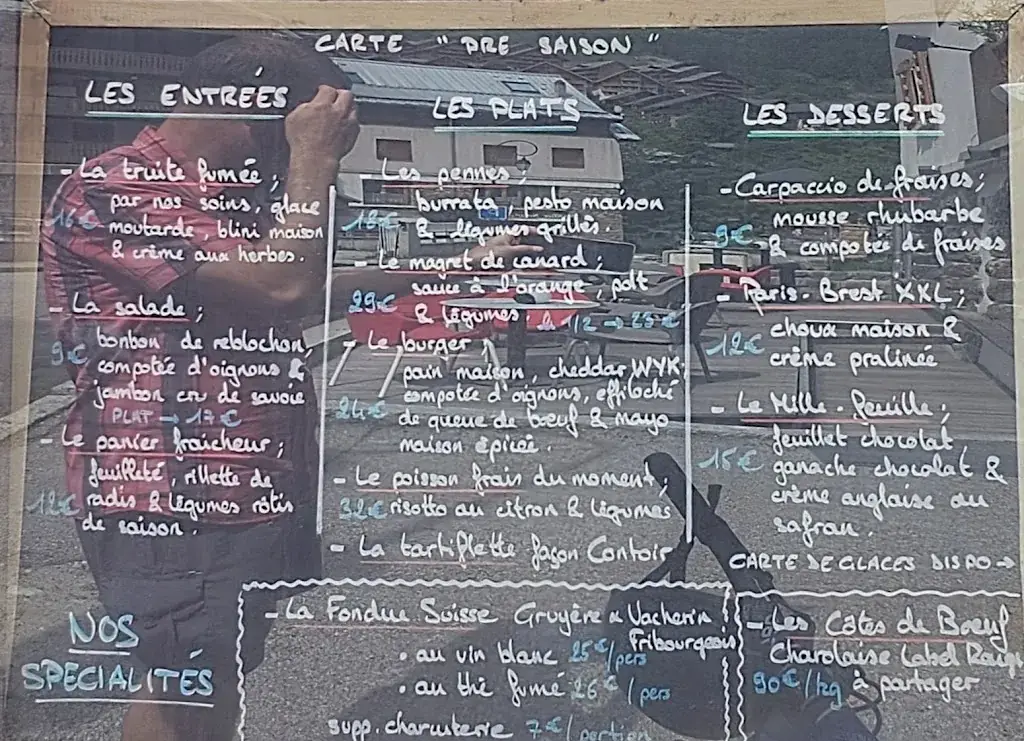 CARTE "PRE SAISON"
LES ENTRÉES
- La truite fumée ;
par nos soins, glace
16€ moutarde, blini maison
& crème aux herbes.
- La salade ;
bonbon de reblochon,
9€ compotée d'oignons &
jambon cru de savoie
PLAT → 17€
- Le panier fraicheur ;
feuilleté, rillette de
12€ radis & légumes rôtis
de saison.
LES PLATS
- Les pennes ;
burrata, pesto maison
18€ & légumes grillés.
- Le magret de canard ;
sauce à l'orange, pdt
29€ & légumes 1/2 → 23€
- Le burger ;
pain maison, cheddar WYK
24€ compotée d'oignons, effiloché
de queue de bœuf & mayo
maison épicée.
- Le poisson frais du moment ;
32€ risotto au citron & légumes
- La tartiflette façon Contoir
LES DESSERTS
- Carpaccio de fraises ;
mousse rhubarbe
9€ & compotée de fraises
- Paris-Brest XXL ;
choux maison &
12€ crème pralinée
- Le Mille-feuille ;
feuillet chocolat
15€ ganache chocolat &
crème anglaise au
safran.
CARTE DE GLACES DISPO →
NOS
SPECIALITÉS
- La Fondue Suisse Gruyère & Vacherin
Fribourgeois
• au vin blanc 25€/pers
• au thé fumé 26€/pers
supp. charcuterie 7€/portion
- Les Côtes de Bœuf
Charolaise Label Rouge
90€/kg à partager